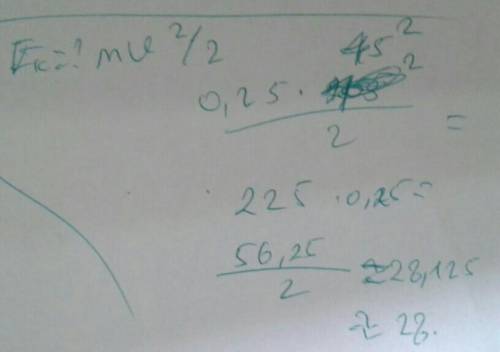 Eк=? mv²/2
45²
0,25 · ²
2
=
225 · 0,25=
56,25
2
≈28,125
≈ 28.